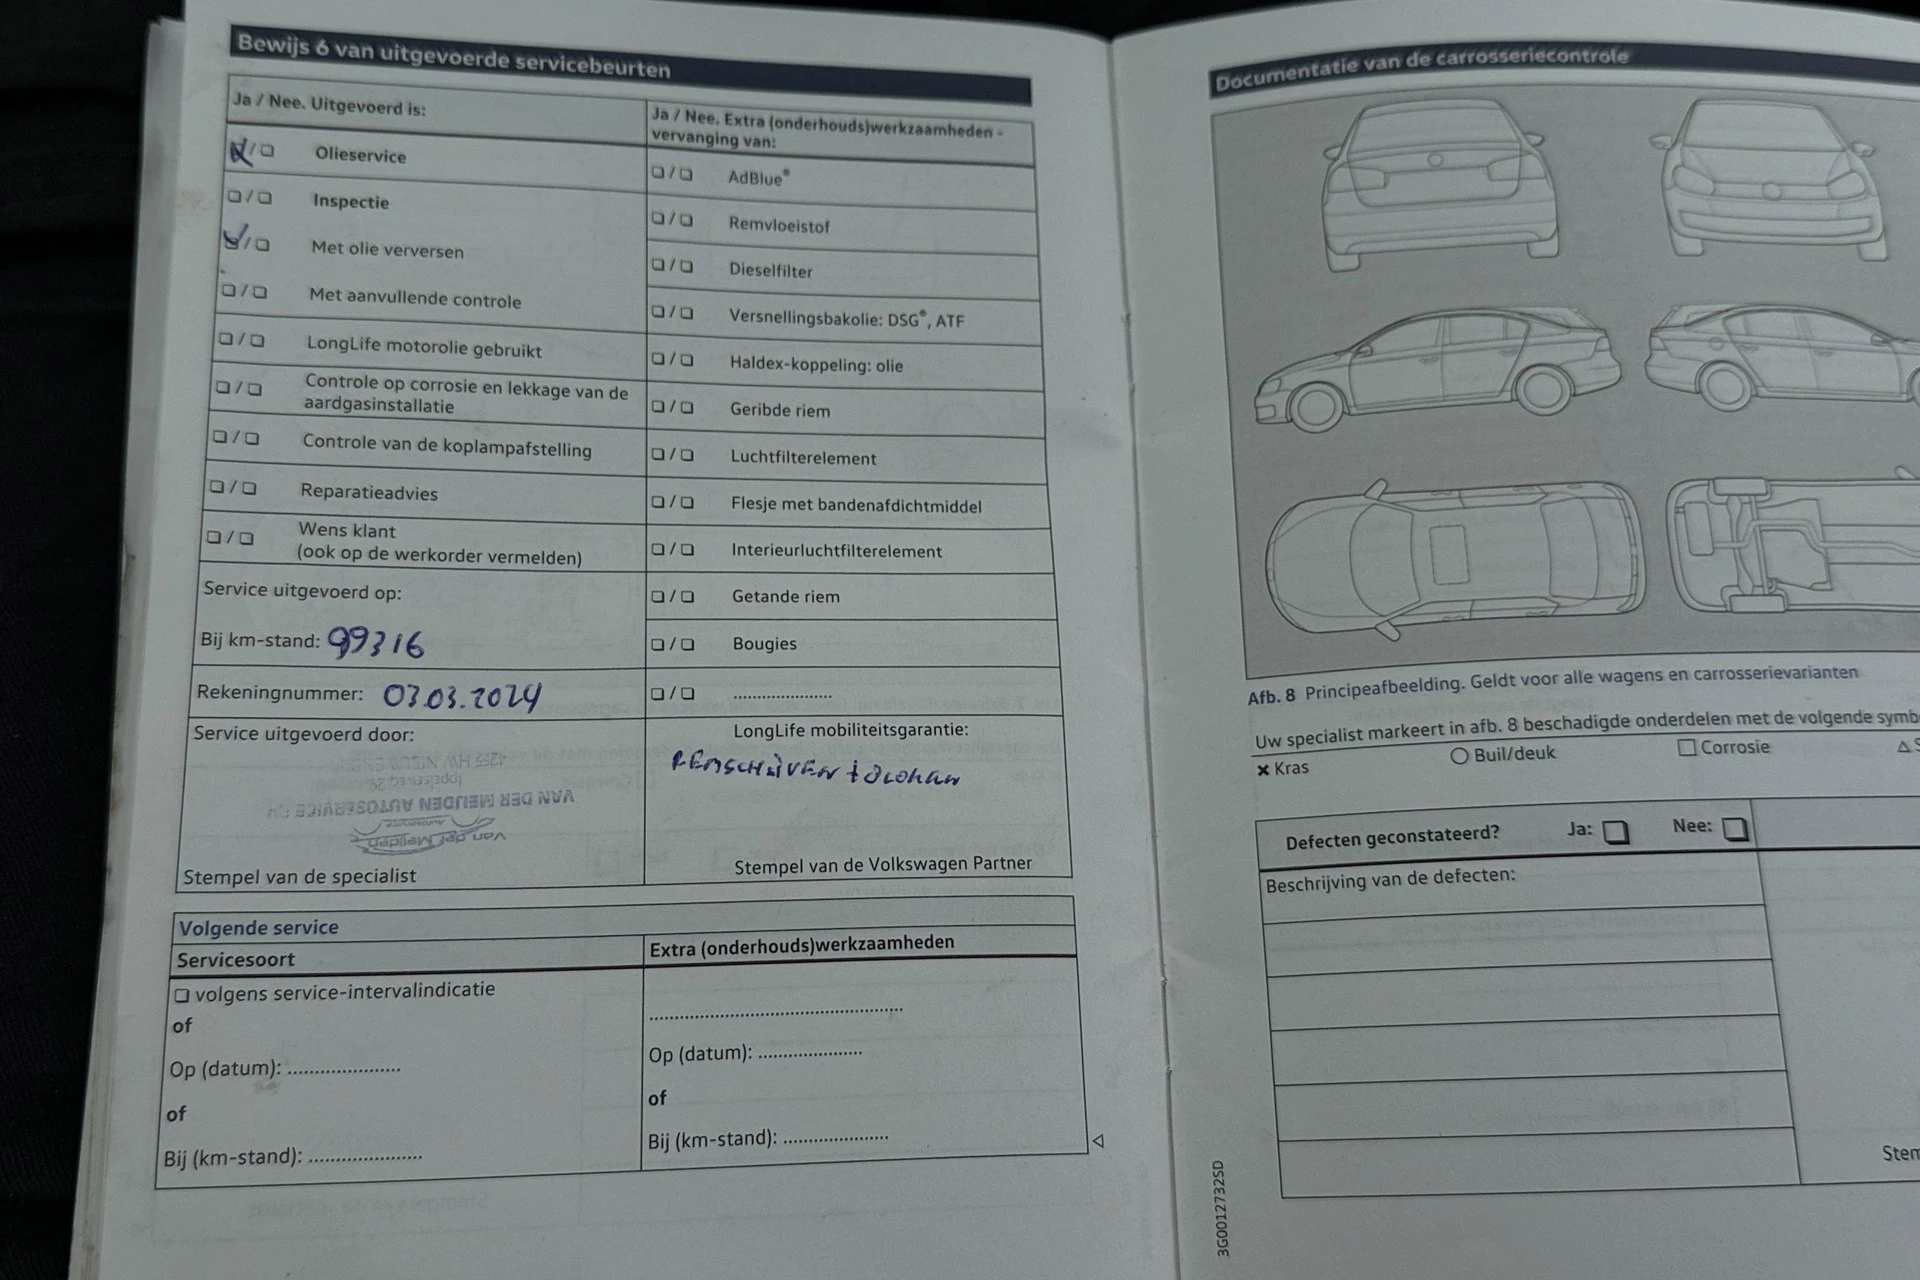 Bewijs 6 van uitgevoerde servicebeurten
Ja / Nee. Uitgevoerd is:
Olieservice
Inspectie
Met olie verversen
Met aanvullende controle
LongLife motorolie gebruikt
Controle op corrosie en lekkage van de
aardgasinstallatie
Controle van de koplampafstelling
Reparatieadvies
Wens klant
(ook op de werkorder vermelden)
Service uitgevoerd op:
Bij km-stand: 99316
Rekeningnummer: 03.03.2024
Service uitgevoerd door:
4255 HW
Ippelseweg
VAN DER MEIJDEN AUTOSERVICE
Van der Meijden
Stempel van de specialist
Ja / Nee. Extra (onderhouds)werkzaamheden -
vervanging van:
AdBlue®
Remvloeistof
Dieselfilter
Versnellingsbakolie: DSG®, ATF
Haldex-koppeling: olie
Geribde riem
Luchtfilterelement
Flesje met bandenafdichtmiddel
Interieurluchtfilterelement
Getande riem
Bougies
LongLife mobiliteitsgarantie:
REMSCHIJVEN +
Stempel van de Volkswagen Partner
Volgende service
Servicesoort
volgens service-intervalindicatie
of
Op (datum):
of
Bij (km-stand):
Extra (onderhouds)werkzaamheden
Op (datum):
of
Bij (km-stand):
Documentatie van de carrosseriecontrole
Afb. 8 Principeafbeelding. Geldt voor alle wagens en carrosserievarianten
Uw specialist markeert in afb. 8 beschadigde onderdelen met de volgende symb
Kras
Buil/deuk
Corrosie
S
Defecten geconstateerd?
Ja:
Nee:
Beschrijving van de defecten:
Stem
3G0012732SD